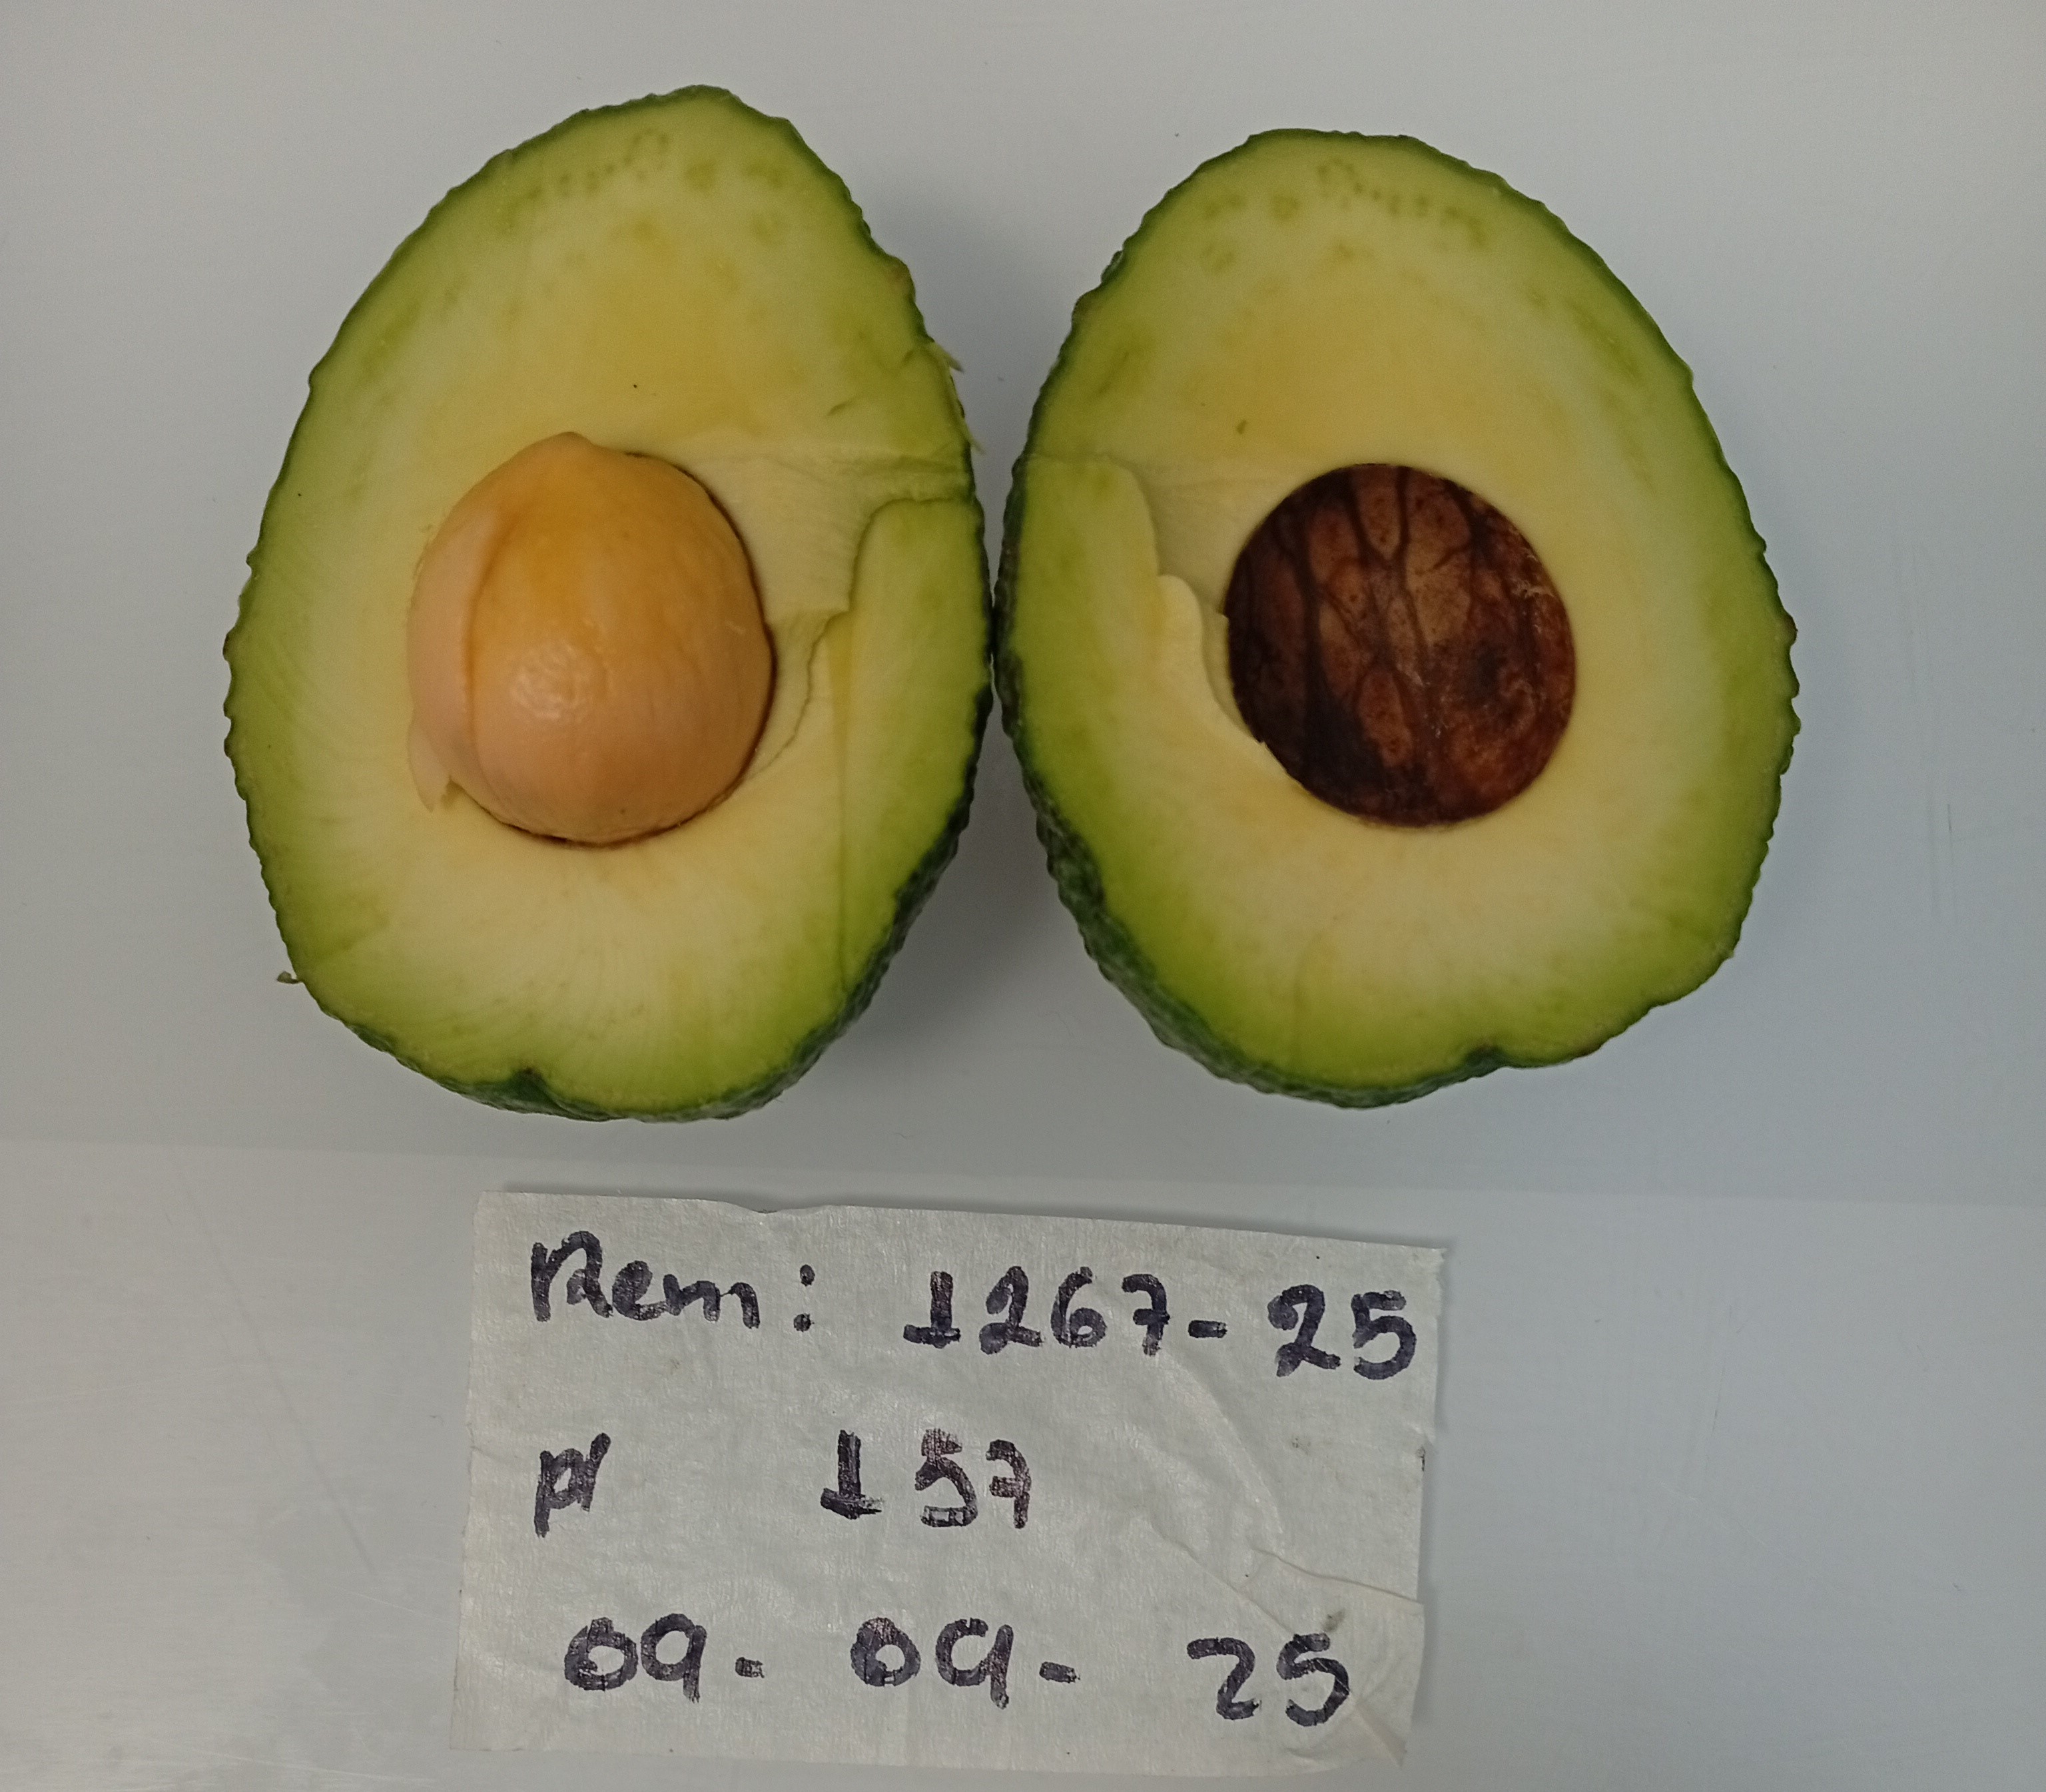 Rem: 1267-25
# 157
09-09-25